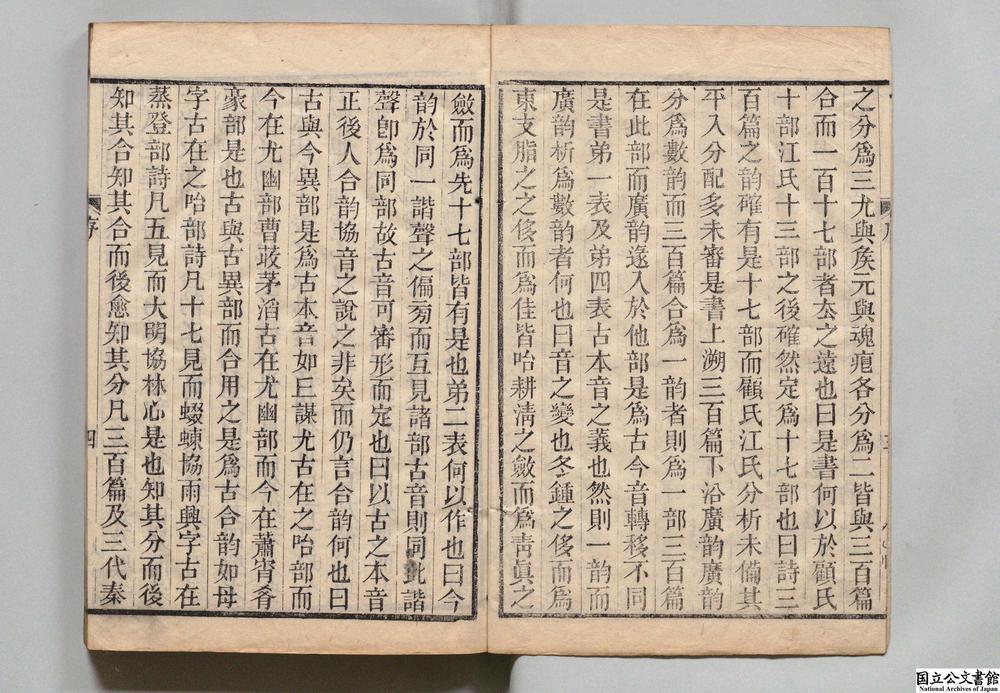 之分爲三尤與矦元與魂痕各分爲二皆與三百篇
合而一百十七部者厺之遠也曰是書何以於顧氏
十部江氏十三部之後確然定爲十七部也曰詩三
百篇之韵確有是十七部而顧氏江氏分析未備其
平入分配多未審是書上溯三百篇下沿廣韵廣韵
分爲數韵而三百篇合爲一韵者則爲一部三百篇
在此部而廣韵遂入於他部是爲古今音轉移不同
是書弟一表及弟四表古本音之義也然則一韵而
廣韵析爲數韵者何也曰音之變也冬鍾之侈而爲
東支脂之之侈而爲佳皆咍耕淸之斂而爲靑眞之
序
斂而爲先十七部皆有是也弟二表何以作也曰今
韵於同一諧聲之偏㫄而互見諸部古音則同此諧
聲卽爲同部故古音可審形而定也曰以古之本音
正後人合韵協音之說之非矣而仍言合韵何也曰
古與今異部是爲古本音如㠯謀尤古在之咍部而
今在尤幽部曹茇茅滔古在尤幽部而今在蕭宵肴
豪部是也古與古異部而合用之是爲古合韵如母
字古在之咍部詩凡十七見而蝃蝀協雨興字古在
蒸登部詩凡五見而大明協林心是也知其分而後
知其合知其合而後愈知其分凡三百篇及三代秦
序
四
国立公文書館
National Archives of Japan